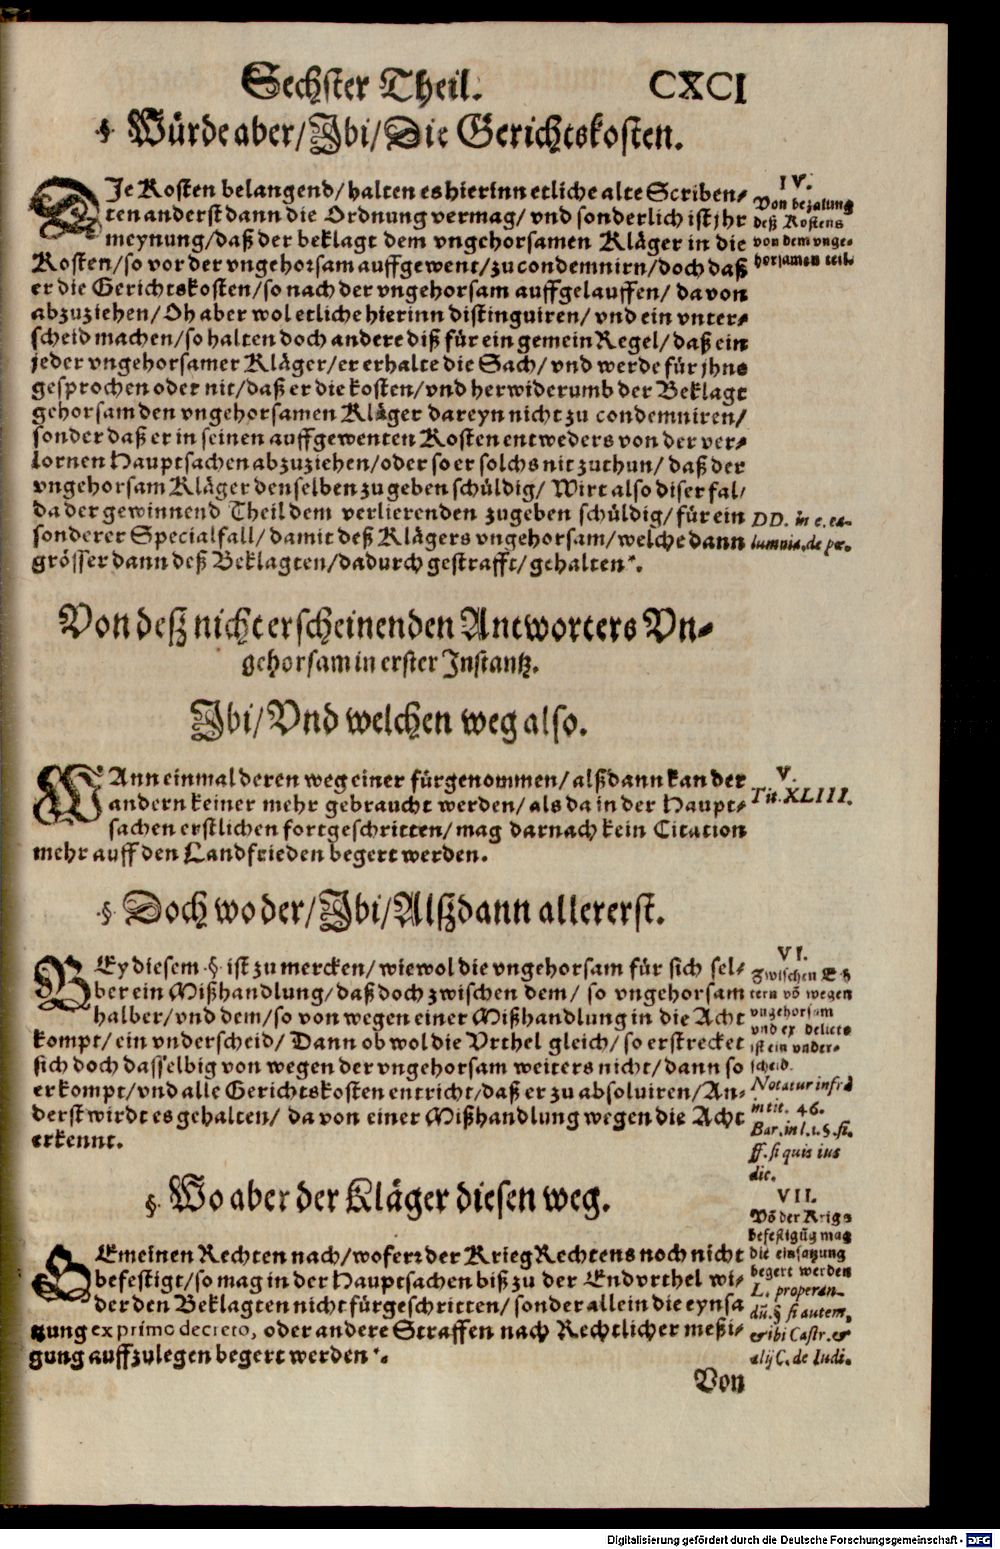 Sechster Theil. CXCI
§ Würde aber/Ibi/Die Gerichtskosten.
DIe Kosten belangend/halten es hierinn etliche alte Scriben-
ten anderst dann die Ordnung vermag/ vnd sonderlich ist jhr
meynung/daß der beklagt dem vngehorsamen Kläger in die
Kosten/so vor der vngehorsam auffgewent/zu condemnirn/doch daß
er die Gerichtskosten/so nach der vngehorsam auffgelauffen/ davon
abzuziehen/Ob aber wol etliche hierinn distinguiren/ vnd ein vnter-
scheid machen/so halten doch andere diß für ein gemein Regel/ daß ein
jeder vngehorsamer Kläger/er erhalte die Sach/ vnd werde für jhne
gesprochen oder nit/daß er die kosten/vnd herwiderumb der Beklagt
gehorsam den vngehorsamen Kläger dareyn nicht zu condemniren/
sonder daß er in seinen auffgewenten Kosten entweders von der ver-
lornen Hauptsachen abzuziehen/oder so er solchs nit zuthun/ daß der
vngehorsam Kläger denselben zugeben schüldig/ Wirt also diser fal/
da der gewinnend Theil dem verlierenden zugeben schüldig/ für ein
sonderer Specialfall/ damit deß Klägers vngehorsam/welche dann
grösser dann deß Beklagten/dadurch gestrafft/gehalten*.
IV.
Von bezalung
deß Kostens
von dem vnge-
horsamen teil.
DD. in c. ca-
lumnia. de pœ.
Von deß nicht erscheinenden Antworters Vn-
gehorsam in erster Instantz.
Ibi/Vnd welchen weg also.
WAnn einmal deren weg einer fürgenommen/alßdann kan der
andern keiner mehr gebraucht werden/ als da in der Haupt-
sachen erstlichen fortgeschritten/ mag darnach kein Citation
mehr auff den Landfrieden begert werden.
V.
Tit. XLIII.
§ Doch wo der/Ibi/Alßdann allererst.
BEy diesem §. ist zu mercken/ wiewol die vngehorsam für sich sel-
ber ein Mißhandlung/daß doch zwischen dem/ so vngehorsam
halber/vnd dem/so von wegen einer Mißhandlung in die Acht
kompt/ ein vnderscheid/ Dann ob wol die Vrthel gleich/ so erstrecket
sich doch dasselbig von wegen der vngehorsam weiters nicht/ dann so
er kompt/vnd alle Gerichtskosten entricht/daß er zu absoluiren/An-
derst wirdt es gehalten/ da von einer Mißhandlung wegen die Acht
erkennt.
VI.
Zwischen
tern võ wegen
vngehorsam
vnd ex delicto
ist ein vnder-
scheid.
Notatur infrà
in tit. 46.
Bar. in l. 1. §. fi.
ff. si quis ius
dic.
§. Wo aber der Kläger diesen weg.
GEmeinen Rechten nach/wofern der Krieg Rechtens noch nicht
befestigt/so mag in der Hauptsachen biß zu der Endvrthel wi-
der den Beklagten nicht fürgeschritten/ sonder allein die eynsa
tzung ex primo decreto, oder andere Straffen nach Rechtlicher meßi-
gung auffzulegen begert werden*.
VII.
Võ der Krigs
befestigũg mag
die einsatzung
begert werden
L. properan-
dũ. § si autem,
& ibi Castr. &
alij C. de Iudi.
Von
Digitalisierung gefördert durch die Deutsche Forschungsgemeinschaft - DFG